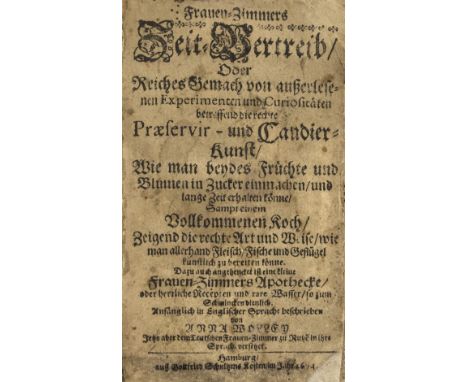 Frauen-Zimmers
Zeit-Vertreib/
Oder
Reiches Gemach von außerlese-
nen Experimenten und Curiositäten
betreffend die rechte
Præservir- und Candier-
Kunst/
Wie man beydes Früchte und
Blumen in Zucker einmachen/und
lange Zeit erhalten könne/
Sampt einem
Vollkommenen Koch/
Zeigend die rechte Art und Weise/wie
man allerhand Fleisch/Fische und Geflügel
künstlich zu bereiten könne.
Dazu auch angehencket ist eine kleine
Frauen-Zimmers Apothecke/
oder herrliche Recepten und rare Wasser/so zum
Schmincken dienlich.
Anfänglich in Englischer Sprache beschrieben
von
ANNA WOLLEY
Jetzo aber dem Teutschen Frauen-Zimmer zu Nutz in ihre
Sprach versetzet.
Hamburg/
auß Gottfried Schultzens Kosten/im Jahr